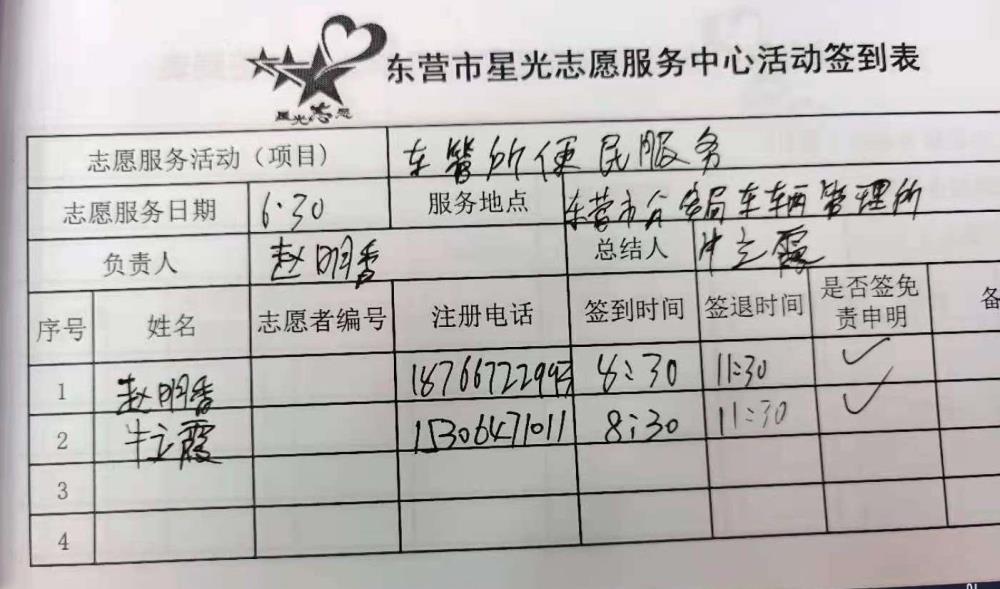 星光志愿
东营市星光志愿服务中心活动签到表
志愿服务活动（项目） 车管所便民服务
志愿服务日期 6.30 服务地点 东营市公安局车辆管理所
负责人 赵明香 总结人 牛立霞
序号 姓名 志愿者编号 注册电话 签到时间 签退时间 是否签免责申明 备
1 赵明香 8:30 11:30 ✓
2 牛立霞 15306471011 8:30 11:30 ✓
3
4